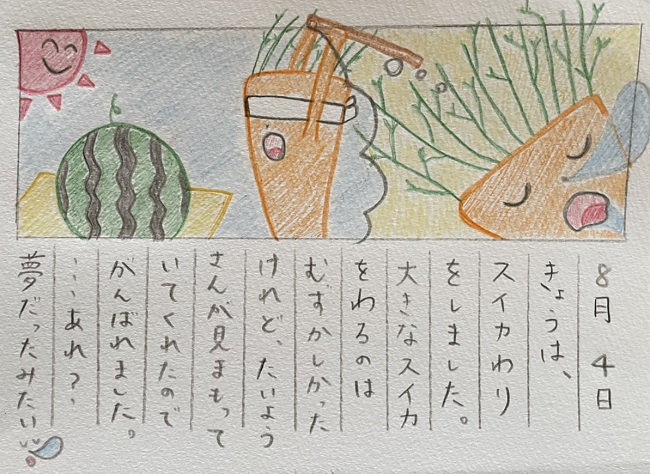 8月 4日
きょうは、
スイカわり
をしました。
大きなスイカ
をわるのは
むずかしかった
けれど、たいよう
さんが見まもって
いてくれたので
がんばれました。
・・・あれ？・
夢だったみたい